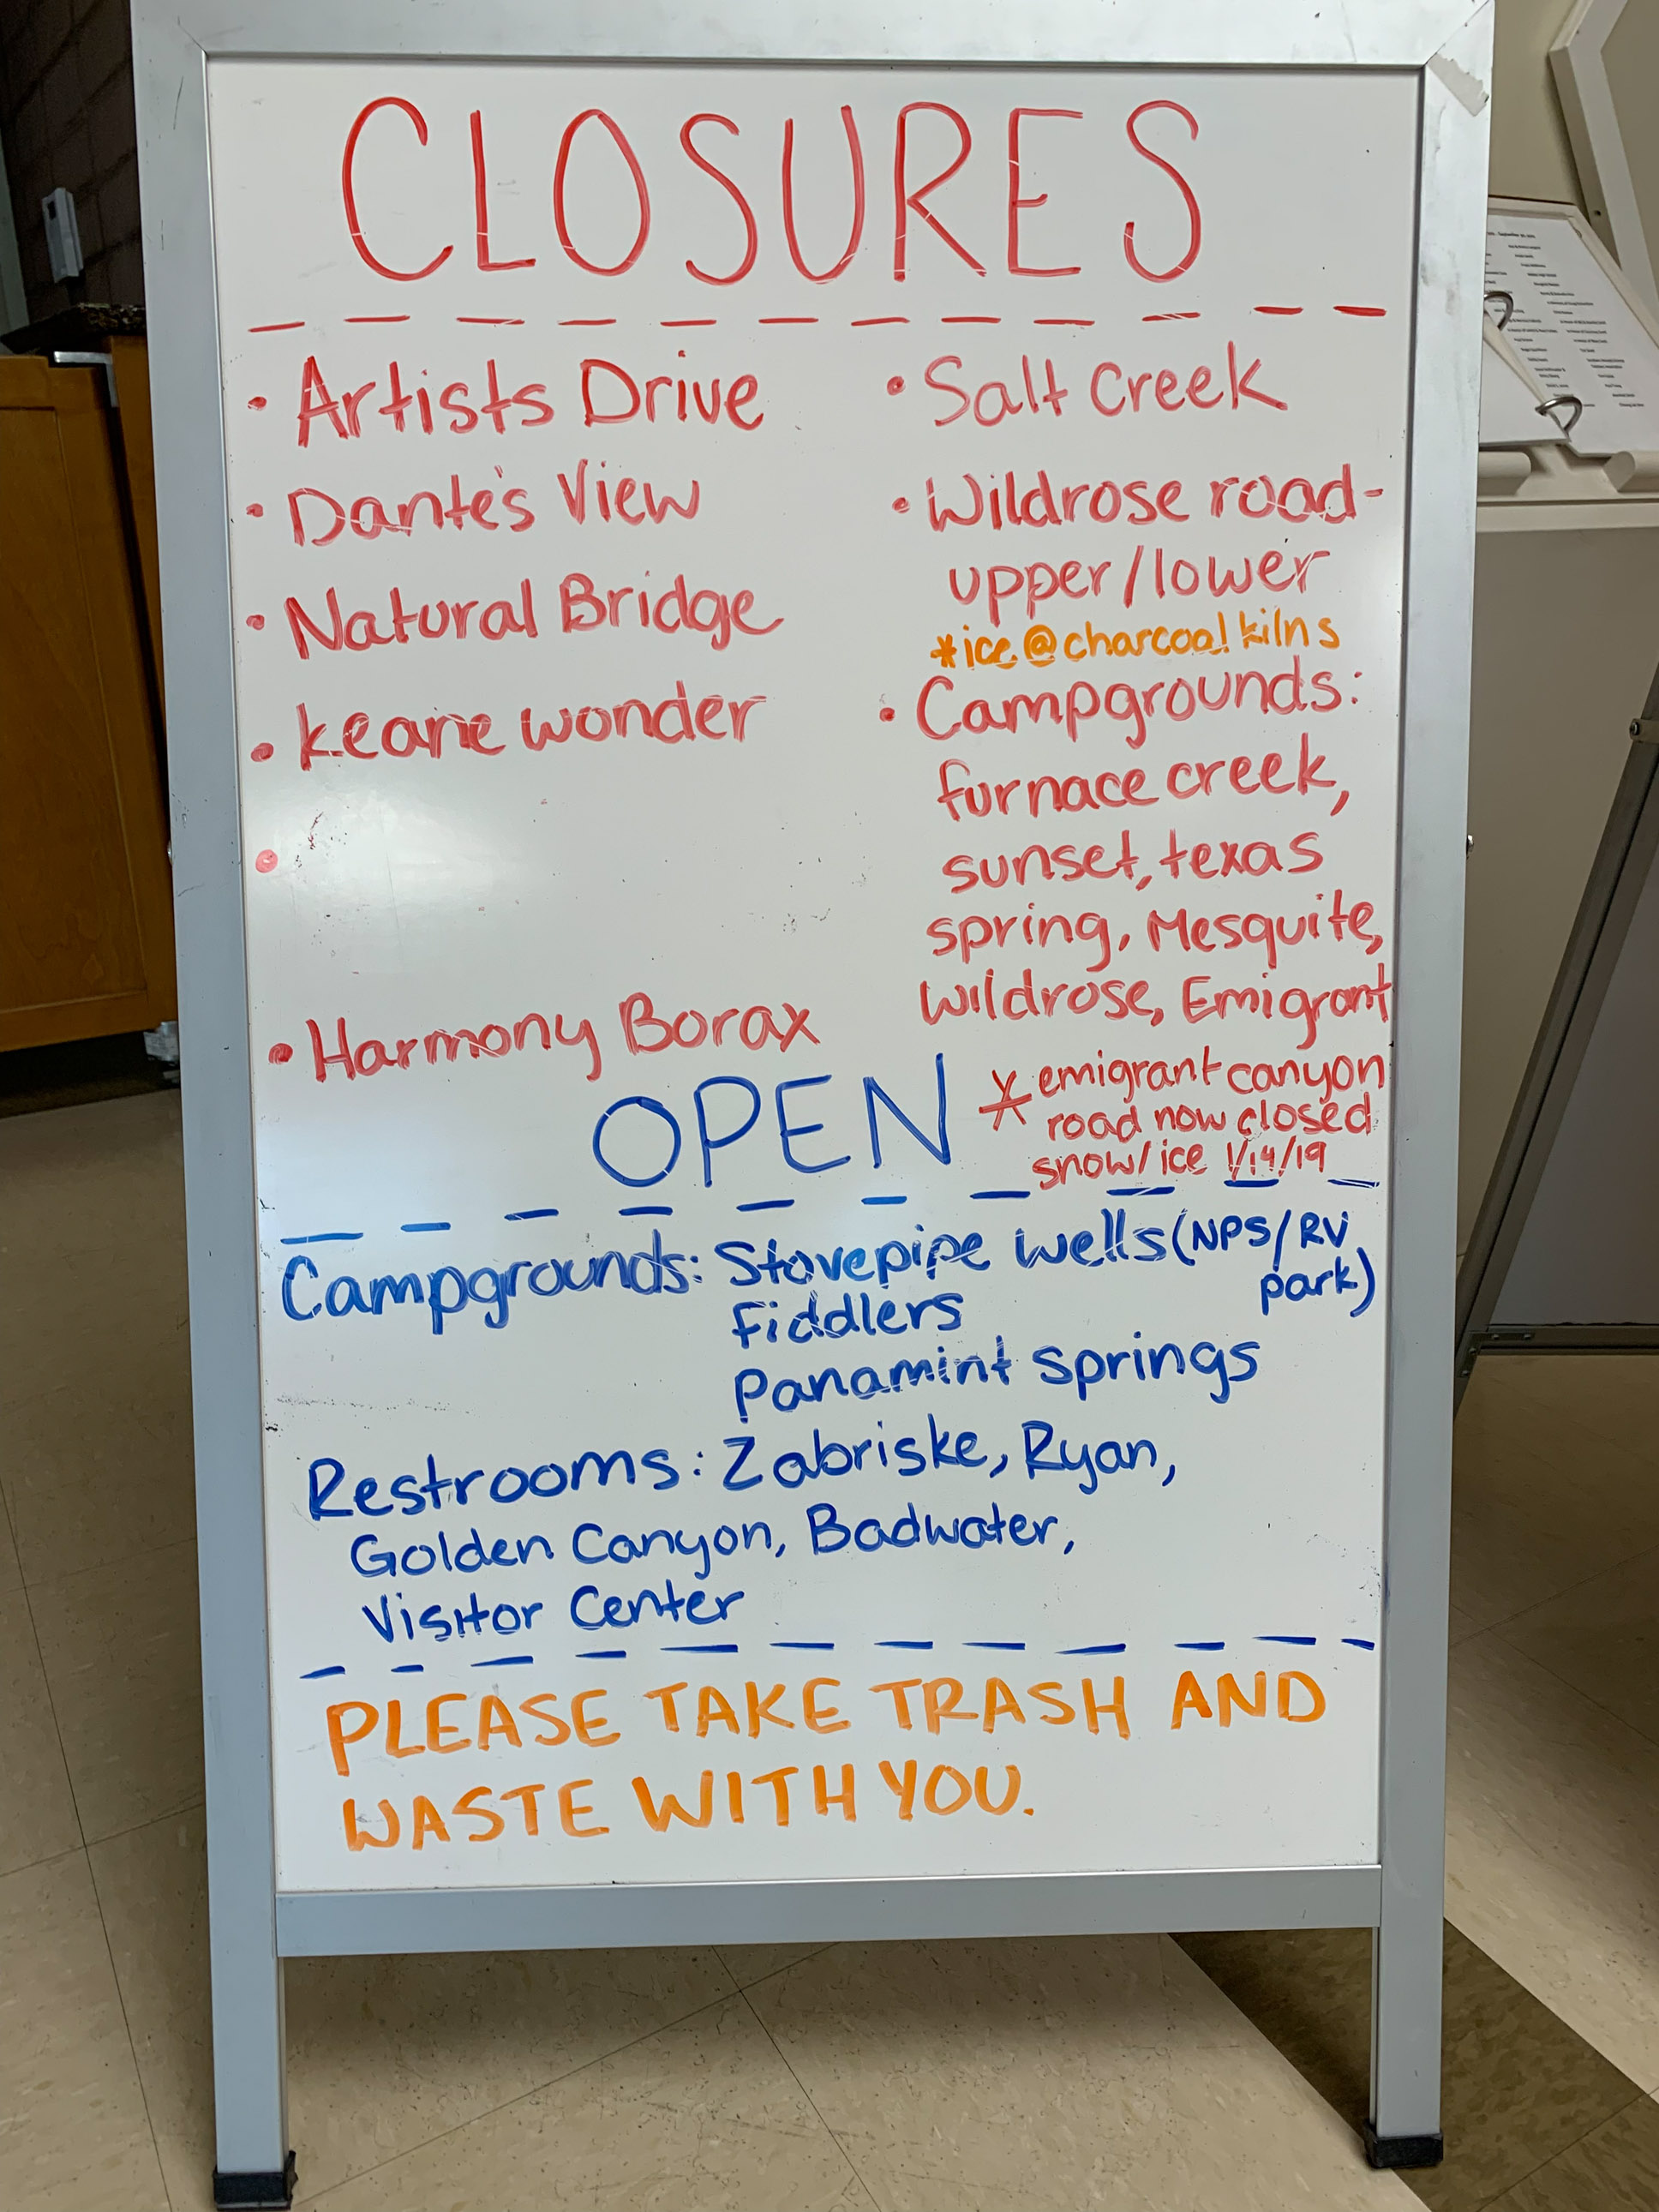 CLOSURES
• Artists Drive
• Dante's View
• Natural Bridge
• keane wonder
•
• Harmony Borax
• Salt Creek
• Wildrose road-
upper/lower
*ice @ charcoal kilns
• Campgrounds:
furnace creek,
sunset, texas
spring, Mesquite,
Wildrose, Emigrant
* emigrant canyon
road now closed
snow/ice 1/14/19
OPEN
Campgrounds: Stovepipe Wells (NPS/RV
park)
Fiddlers
Panamint Springs
Restrooms: Zabriske, Ryan,
Golden Canyon, Badwater,
Visitor Center
PLEASE TAKE TRASH AND
WASTE WITH YOU.